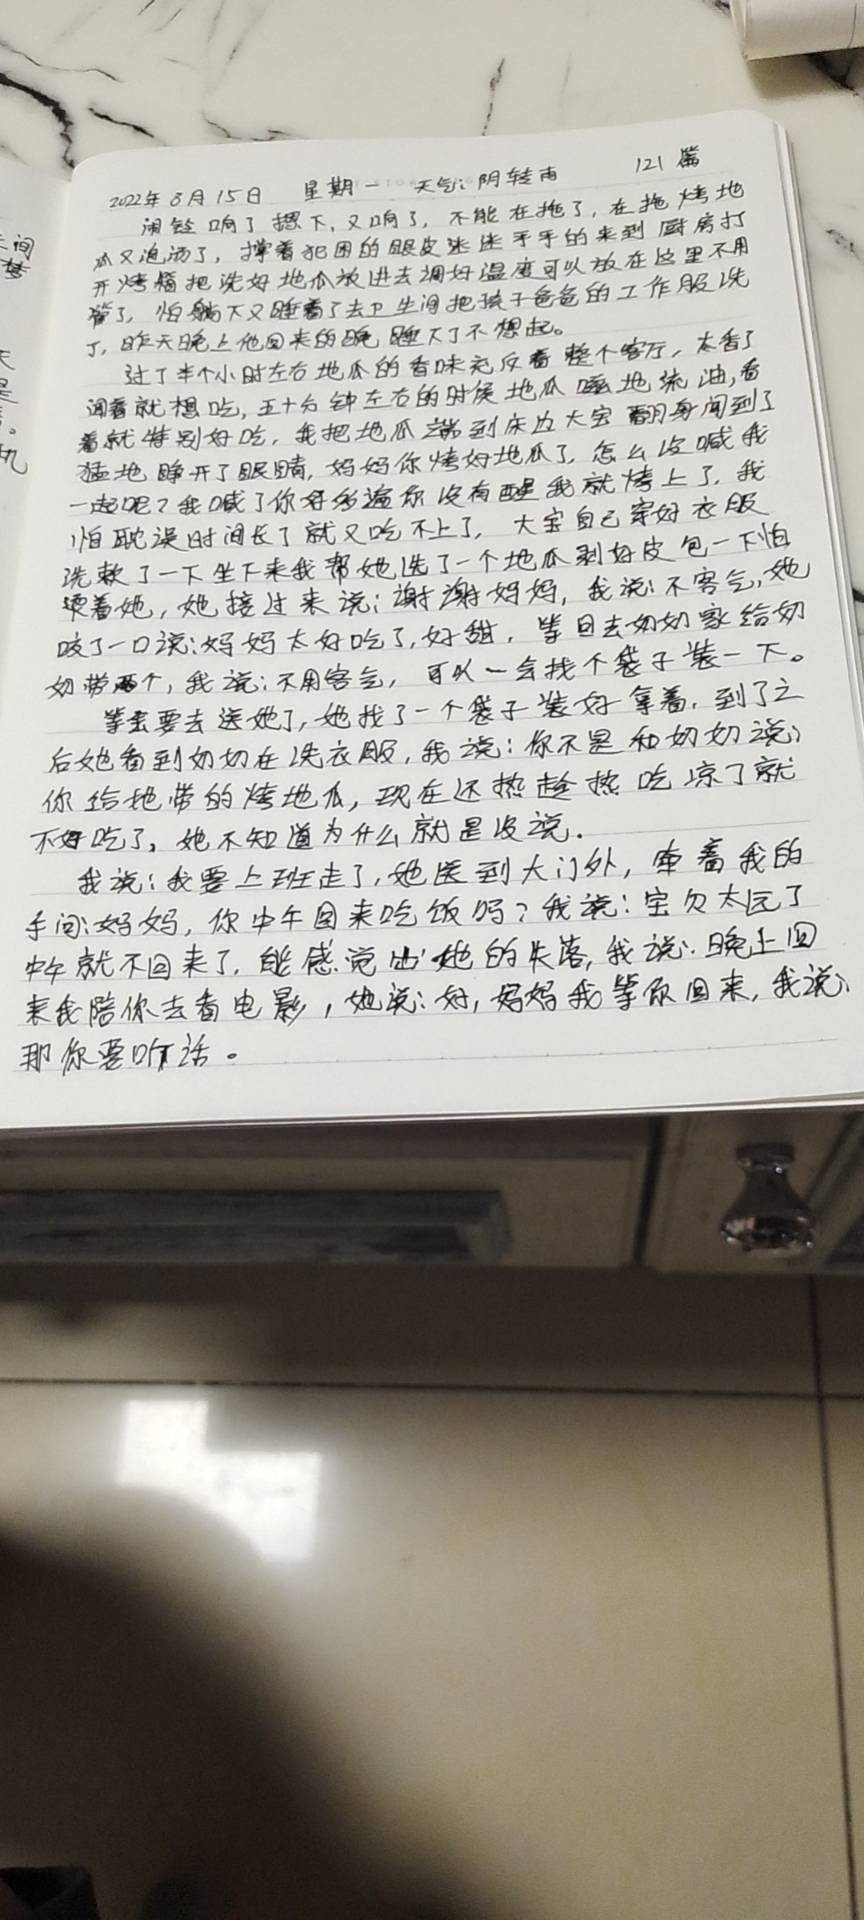 2022年8月15日 星期一 天气:阴转雨 121篇
闹铃响了摁下,又响了,不能在拖了,在拖烤地
瓜又泡汤了,撑着犯困的眼皮迷迷乎乎的来到厨房打
开烤箱把洗好地瓜放进去调好温度可以放在这里不用
管了,怕躺下又睡着了去卫生间把孩子爸爸的工作服洗
了,昨天晚上他回来的晚睡下了不想起。
过了半个小时左右地瓜的香味充斥着整个客厅,太香了
闻着就想吃,五十分钟左右的时侯地瓜嗞地流油,看
着就特别好吃,我把地瓜端到床边大宝翻身闻到了
猛地睁开了眼睛,妈妈你烤好地瓜了,怎么没喊我
一起呢?我喊了你好多遍你没有醒我就烤上了,我
怕耽误时间长了就又吃不上了,大宝自己穿好衣服
洗漱了一下坐下来我帮她选了一个地瓜剥好皮包一下怕
烫着她,她接过来说:谢谢妈妈,我说:不客气,她
咬了一口说:妈妈太好吃了,好甜,等回去奶奶家给奶
奶带两个,我说:不用客气,可以一会找个袋子装一下。
等要去送她了,她找了一个袋子装好拿着,到了之
后她看到奶奶在洗衣服,我说:你不是和奶奶说
你给她带的烤地瓜,现在还热趁热吃凉了就
不好吃了,她不知道为什么就是没说.
我说:我要上班走了,她送到大门外,牵着我的
手问:妈妈,你中午回来吃饭吗?我说:宝贝太远了
中午就不回来了,能感觉出她的失落,我说:晚上回
来我陪你去看电影,她说:好,妈妈我等你回来,我说:
那你要听话。
间
梦
天
是
。
机